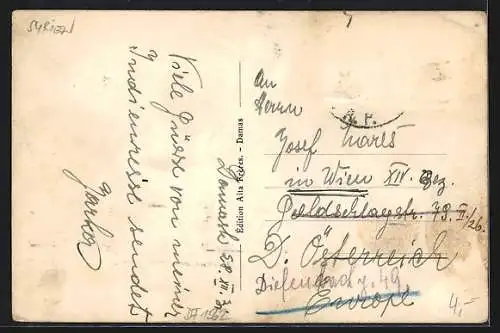 SYRIEN
Viele Grüsse von meiner
Indienreise sendet
Damask 28. III. 3
Edition Alta Frères. - Damas
An
Herrn
Josef
in Wien XIV. Bez.
Goldschlagstr. 73. II/26.
D. Österreich
Diefenbachg. 49
Europe
4,-